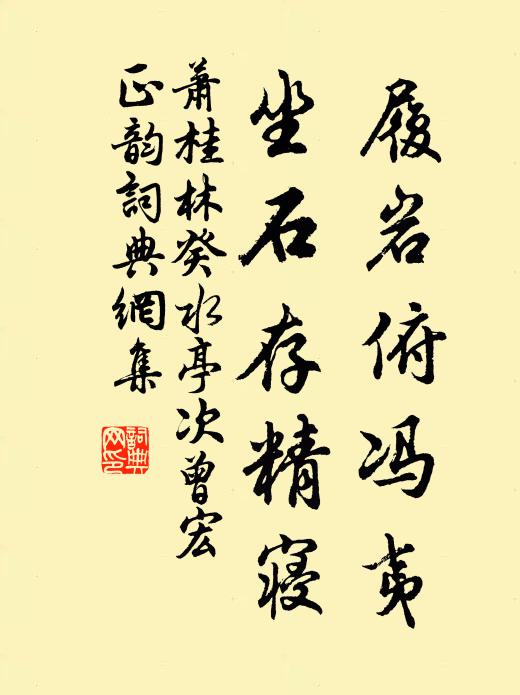 履岩俯冯夷
坐石存精寝
萧桂林癸水亭次曾宏
正韵词典网集
詞典网印